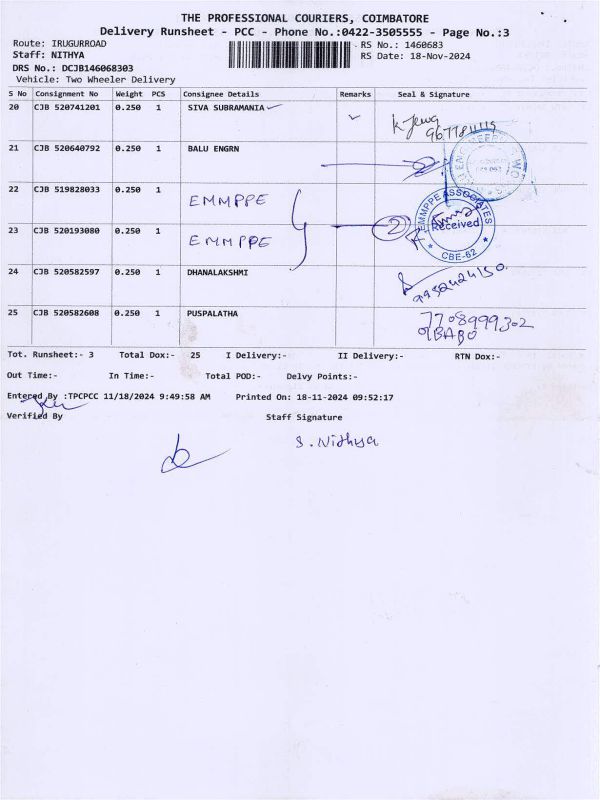 THE PROFESSIONAL COURIERS, COIMBATORE
Delivery Runsheet - PCC - Phone No.:0422-3505555 - Page No.:3
Route: IRUGURROAD RS No.: 1460683
Staff: NITHYA RS Date: 18-Nov-2024
DRS No.: DCJB146068303
Vehicle: Two Wheeler Delivery
S No Consignment No Weight PCS Consignee Details Remarks Seal & Signature
20 CJB 520741201 0.250 1 SIVA SUBRAMANIA
21 CJB 520640792 0.250 1 BALU ENGRN
22 CJB 519828033 0.250 1 EMMPPE
EMMPPE ASSOCIATES
2 Received
CBE-62
23 CJB 520193080 0.250 1 EMMPPE
24 CJB 520582597 0.250 1 DHANALAKSHMI
9952424150.
25 CJB 520582608 0.250 1 PUSPALATHA 7708999302
BABO
Tot. Runsheet:- 3 Total Dox:- 25 I Delivery:- II Delivery:- RTN Dox:-
Out Time:- In Time:- Total POD:- Delvy Points:-
Entered By :TPCPCC 11/18/2024 9:49:58 AM Printed On: 18-11-2024 09:52:17
Verified By Staff Signature
S. Nithya